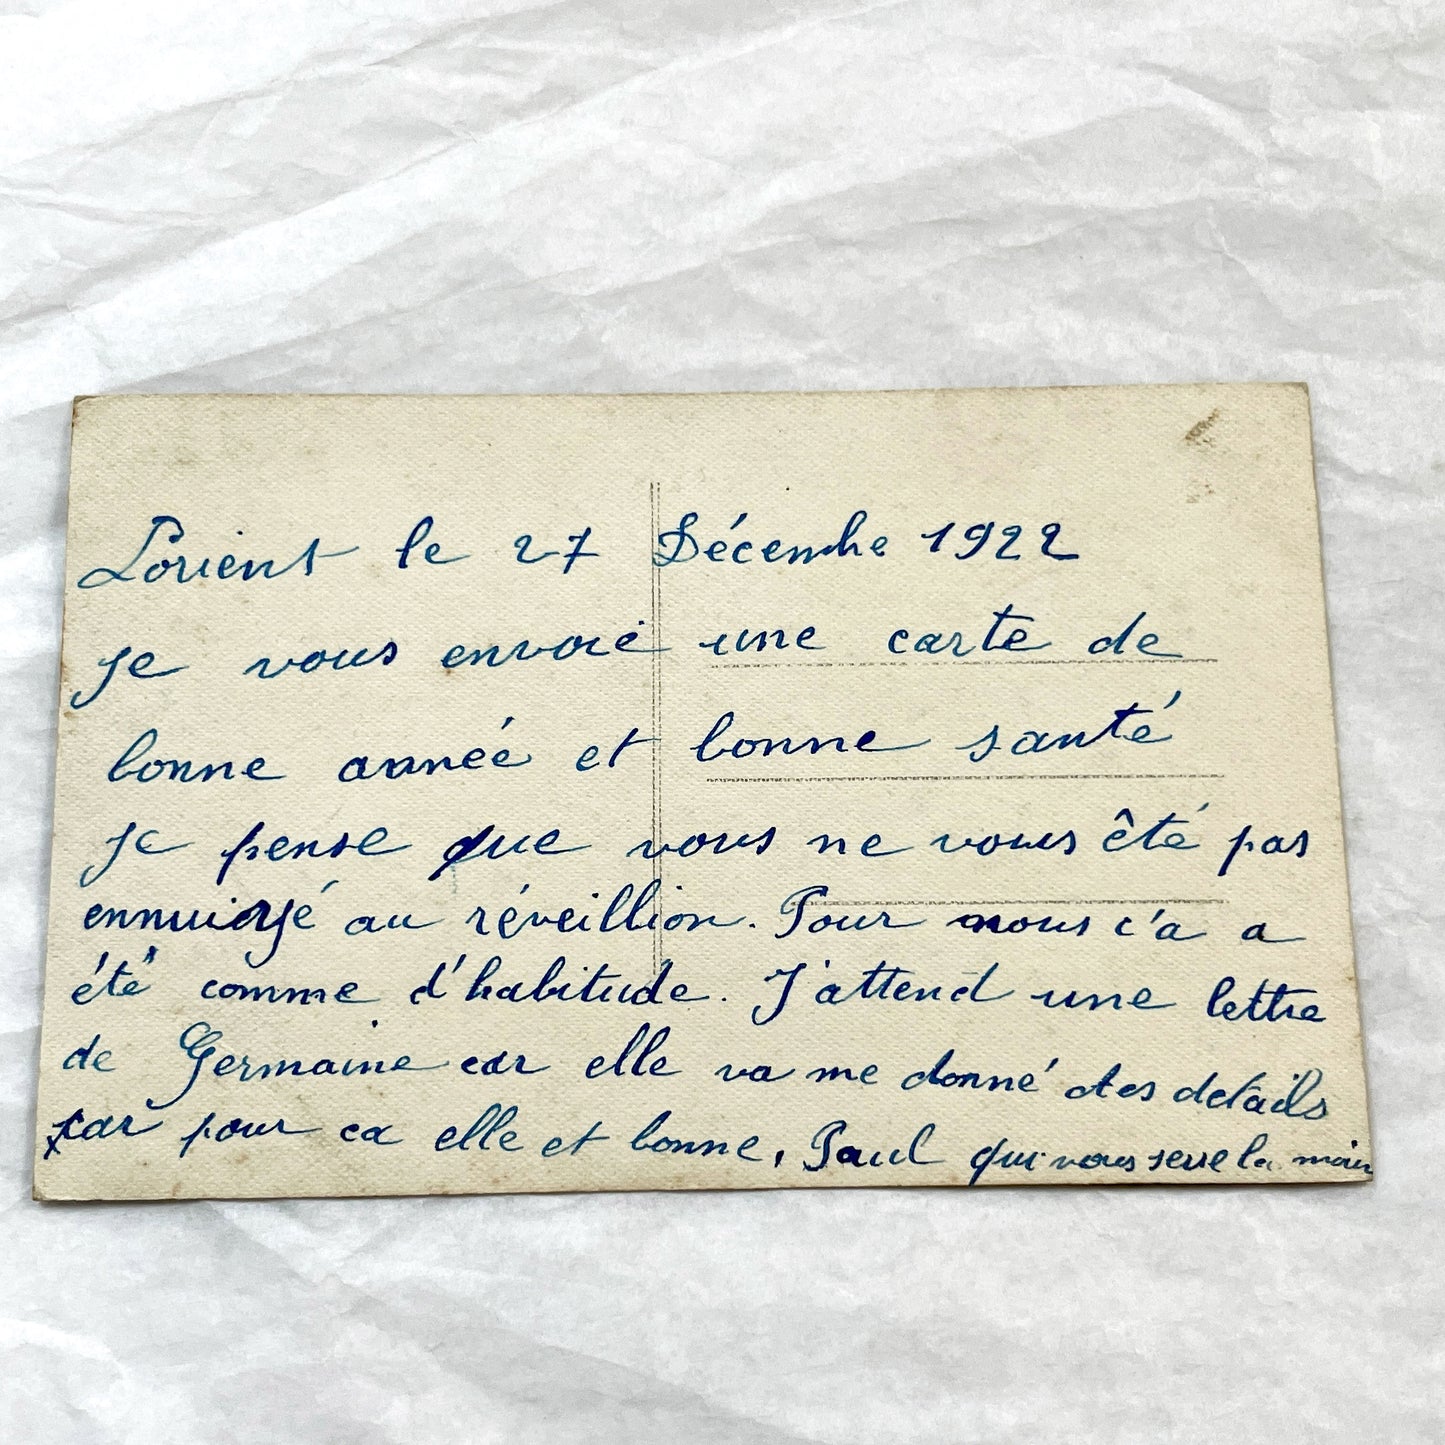 Lorient le 27 Décembre 1922
Je vous envoie une carte de
bonne année et bonne santé
Je pense que vous ne vous êté pas
ennuiyé au réveillion. Pour nous c'a a
été comme d'habitude. J'attend une lettre
de Germaine car elle va me donné des détails
car pour ca elle et bonne, Paul qui vous serre la main